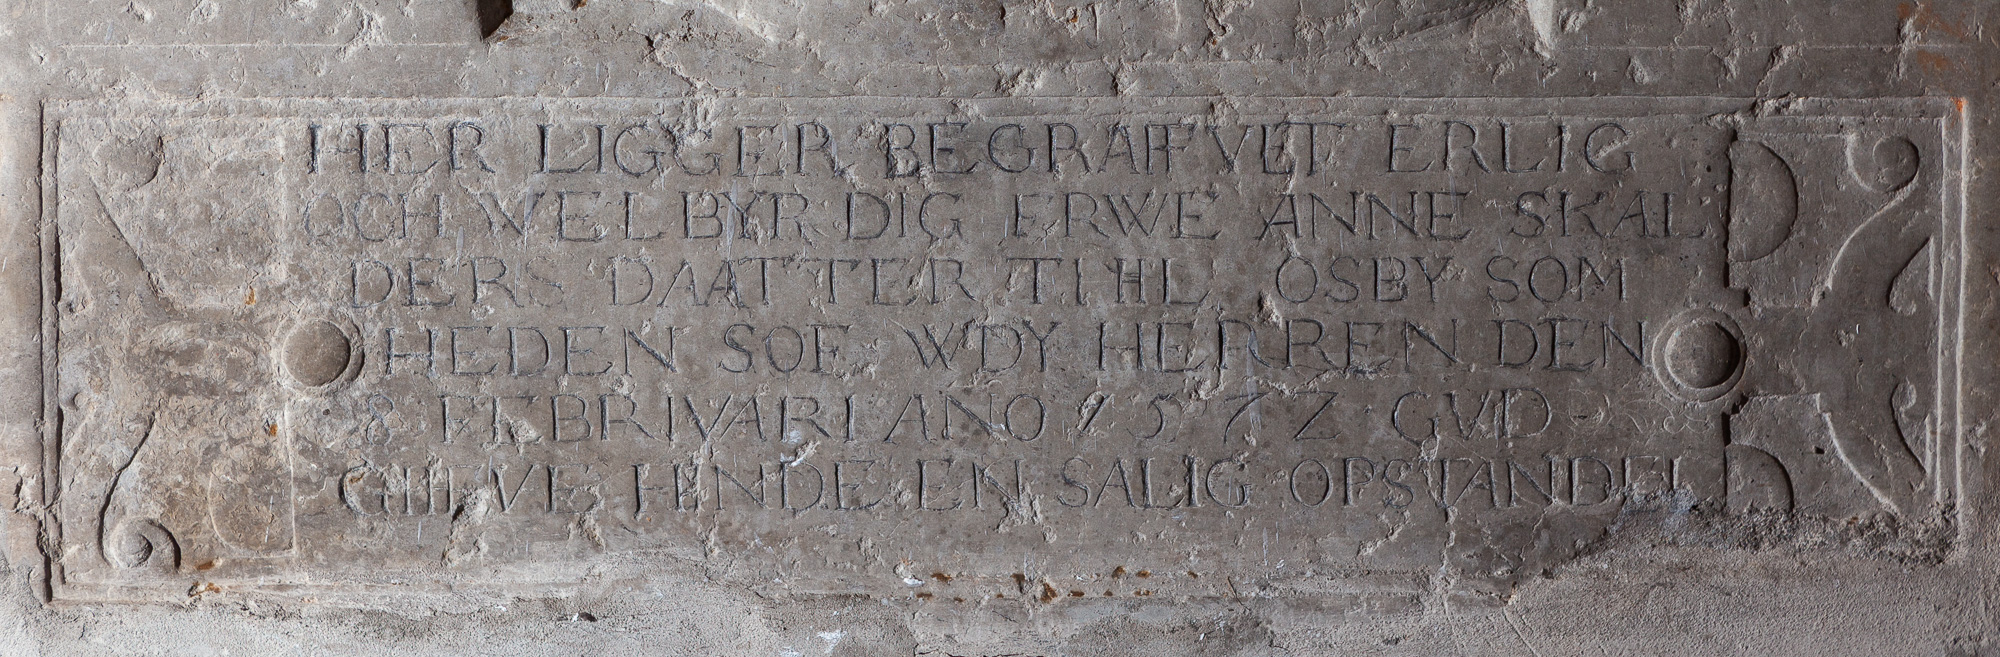 HER LIGGER BEGRAFVET ERLIG
OCH WELBYRDIG FRWE ANNE SKAL
DERS DAATTER TIHL OSBY SOM
HEDEN SOF WDY HERREN DEN
8 FEBRIVARI ANO 1572 GVD
GIFVE HINDE EN SALIG OPSTANDEL